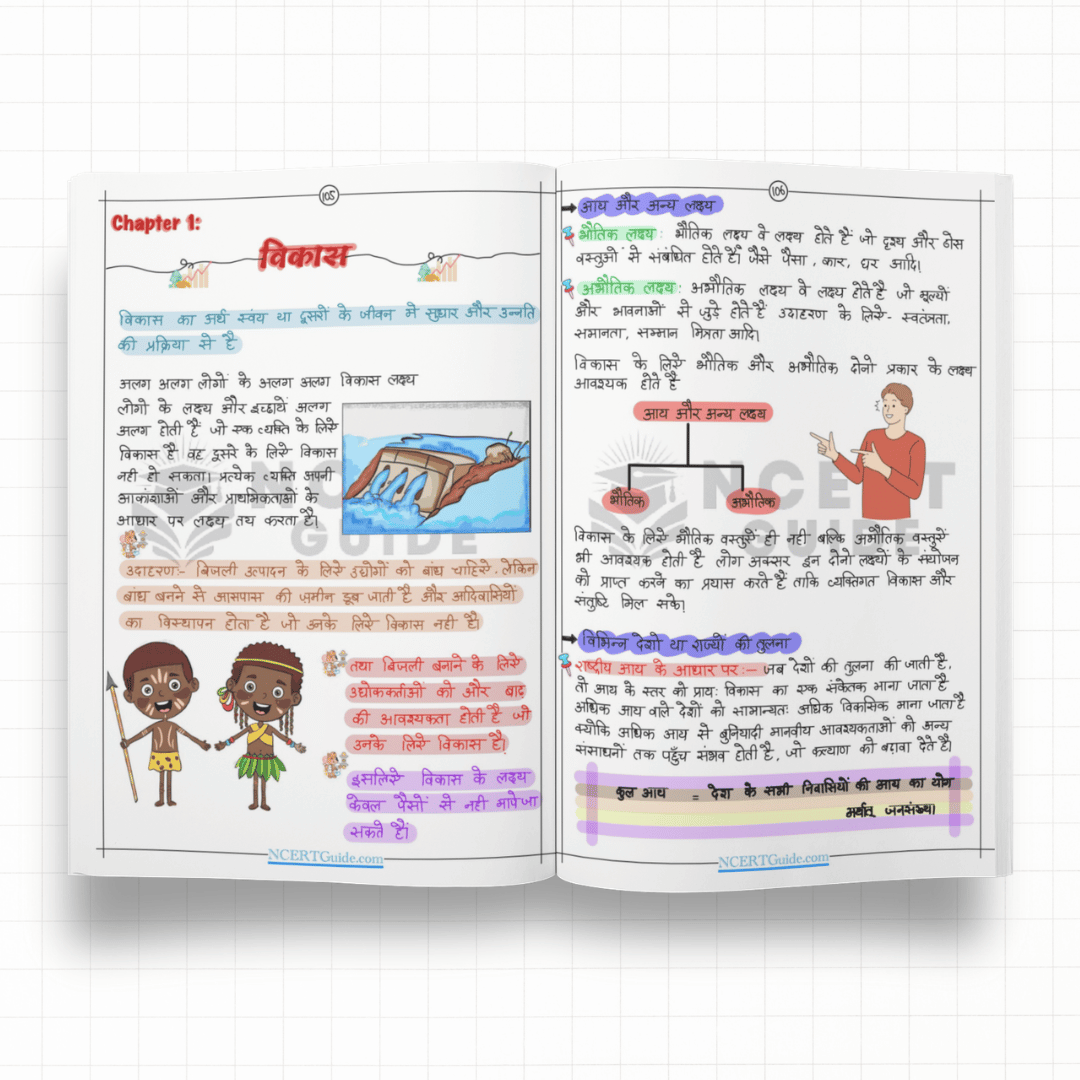 105
Chapter 1:
विकास
विकास का अर्थ स्वंय या दूसरों के जीवन मे सुधार और उन्नति
की प्रक्रिया से है
अलग अलग लोगों के अलग अलग विकास लक्ष्य
लोगो के लक्ष्य और इच्छायें अलग
अलग होती हैं जो एक व्यक्ति के लिऐ
विकास है वह दूसरे के लिऐ विकास
नही हो सकता। प्रत्येक व्यक्ति अपनी
आकांशाओं और प्राथमिकताओं के
आधार पर लक्ष्य तय करता है।
उदाहरण:- बिजली उत्पादन के लिऐ उद्योगों को बांध चाहिऐ, लेकिन
बांध बनने से आसपास की ज़मीन डूब जाती है और आदिवासियों
का विस्थापन होता है जो उनके लिऐ विकास नही है।
तथा बिजली बनाने के लिऐ
उद्योककर्ताओं को और बाद
की आवश्यकता होती है जो
उनके लिऐ विकास है।
इसलिऐ विकास के लक्ष्य
केवल पैसों से नही मापे जा
सकते हैं।
NCERTGuide.com
106
आय और अन्य लक्ष्य
भौतिक लक्ष्य: भौतिक लक्ष्य वे लक्ष्य होते हैं जो दृश्य और ठोस
वस्तुओं से संबंधित होते है। जैसे पैसा, कार, घर आदि।
अभौतिक लक्ष्य: अभौतिक लक्ष्य वे लक्ष्य होते है जो मूल्यों
और भावनाओं से जुड़े होते हैं उदाहरण के लिऐ- स्वतंत्रता,
समानता, सम्मान मित्रता आदि।
विकास के लिऐ भौतिक और अभौतिक दोनो प्रकार के लक्ष्य
आवश्यक होते है
आय और अन्य लक्ष्य
भौतिक अभौतिक
NCERT
GUIDE
विकास के लिऐ भौतिक वस्तुऐं ही नही बल्कि अभौतिक वस्तुऐं
भी आवश्यक होती है लोग अक्सर इन दोनो लक्ष्यों के संयोजन
को प्राप्त करने का प्रयास करते हैं ताकि व्यक्तिगत विकास और
संतुष्टि मिल सके।
विभिन्न देशों या राज्यों की तुलना
राष्ट्रीय आय के आधार पर:- जब देशों की तुलना की जाती है,
तो आय के स्तर को प्राय: विकास का एक संकेतक माना जाता है
अधिक आय वाले देशों को सामान्यतः अधिक विकसिक माना जाता है
क्योंकि अधिक आय से बुनियादी मानवीय आवश्यकताओं को अन्य
संसाधनों तक पहुँच संभव होती है, जो कल्याण को बढ़ावा देते है।
कुल आय = देश के सभी निवासियों की आय का योग
अर्थात् जनसंख्या।
NCERTGuide.com